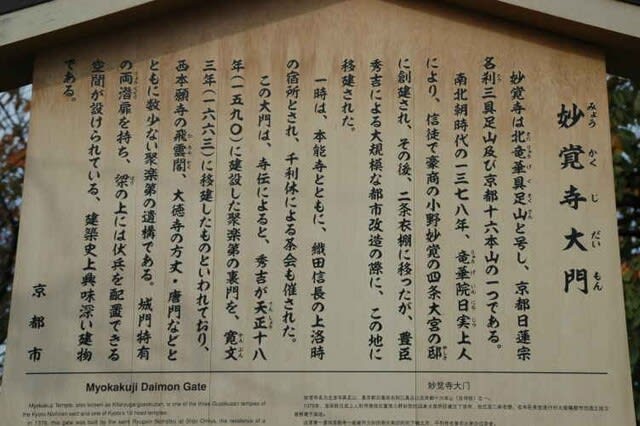 妙覚寺大門
みょうかくじだいもん
妙覚寺は北竜華具足山と号し、京都日蓮宗
名刹三具足山及び京都十六本山の一つである。
南北朝時代の一三七八年、竜華院日実上人
により、信徒で豪商の小野妙覚の四条大宮の邸
に創建され、その後、二条衣棚に移ったが、豊臣
秀吉による大規模な都市改造の際に、この地に
移建された。
一時は、本能寺とともに、織田信長の上洛時
の宿所とされ、千利休による茶会も催された。
この大門は、寺伝によると、秀吉が天正十八
年(一五九〇)に建設した聚楽第の裏門を、寛文
三年(一六六三)に移建したものといわれており、
西本願寺の飛雲閣、大徳寺の方丈・唐門などと
ともに数少ない聚楽第の遺構である。城門特有
の両潜扉を持ち、梁の上には伏兵を配置できる
空間が設けられている、建築史上興味深い建物
である。
京都市
Myokakuji Daimon Gate
Myokakuji Temple, also known as
is one of the three Gusokuzan temples of
the Kyoto Nichiren sect and one of Kyoto's 16 head temples.
In 1378, this
was built by the
the residence of a
妙觉寺大门